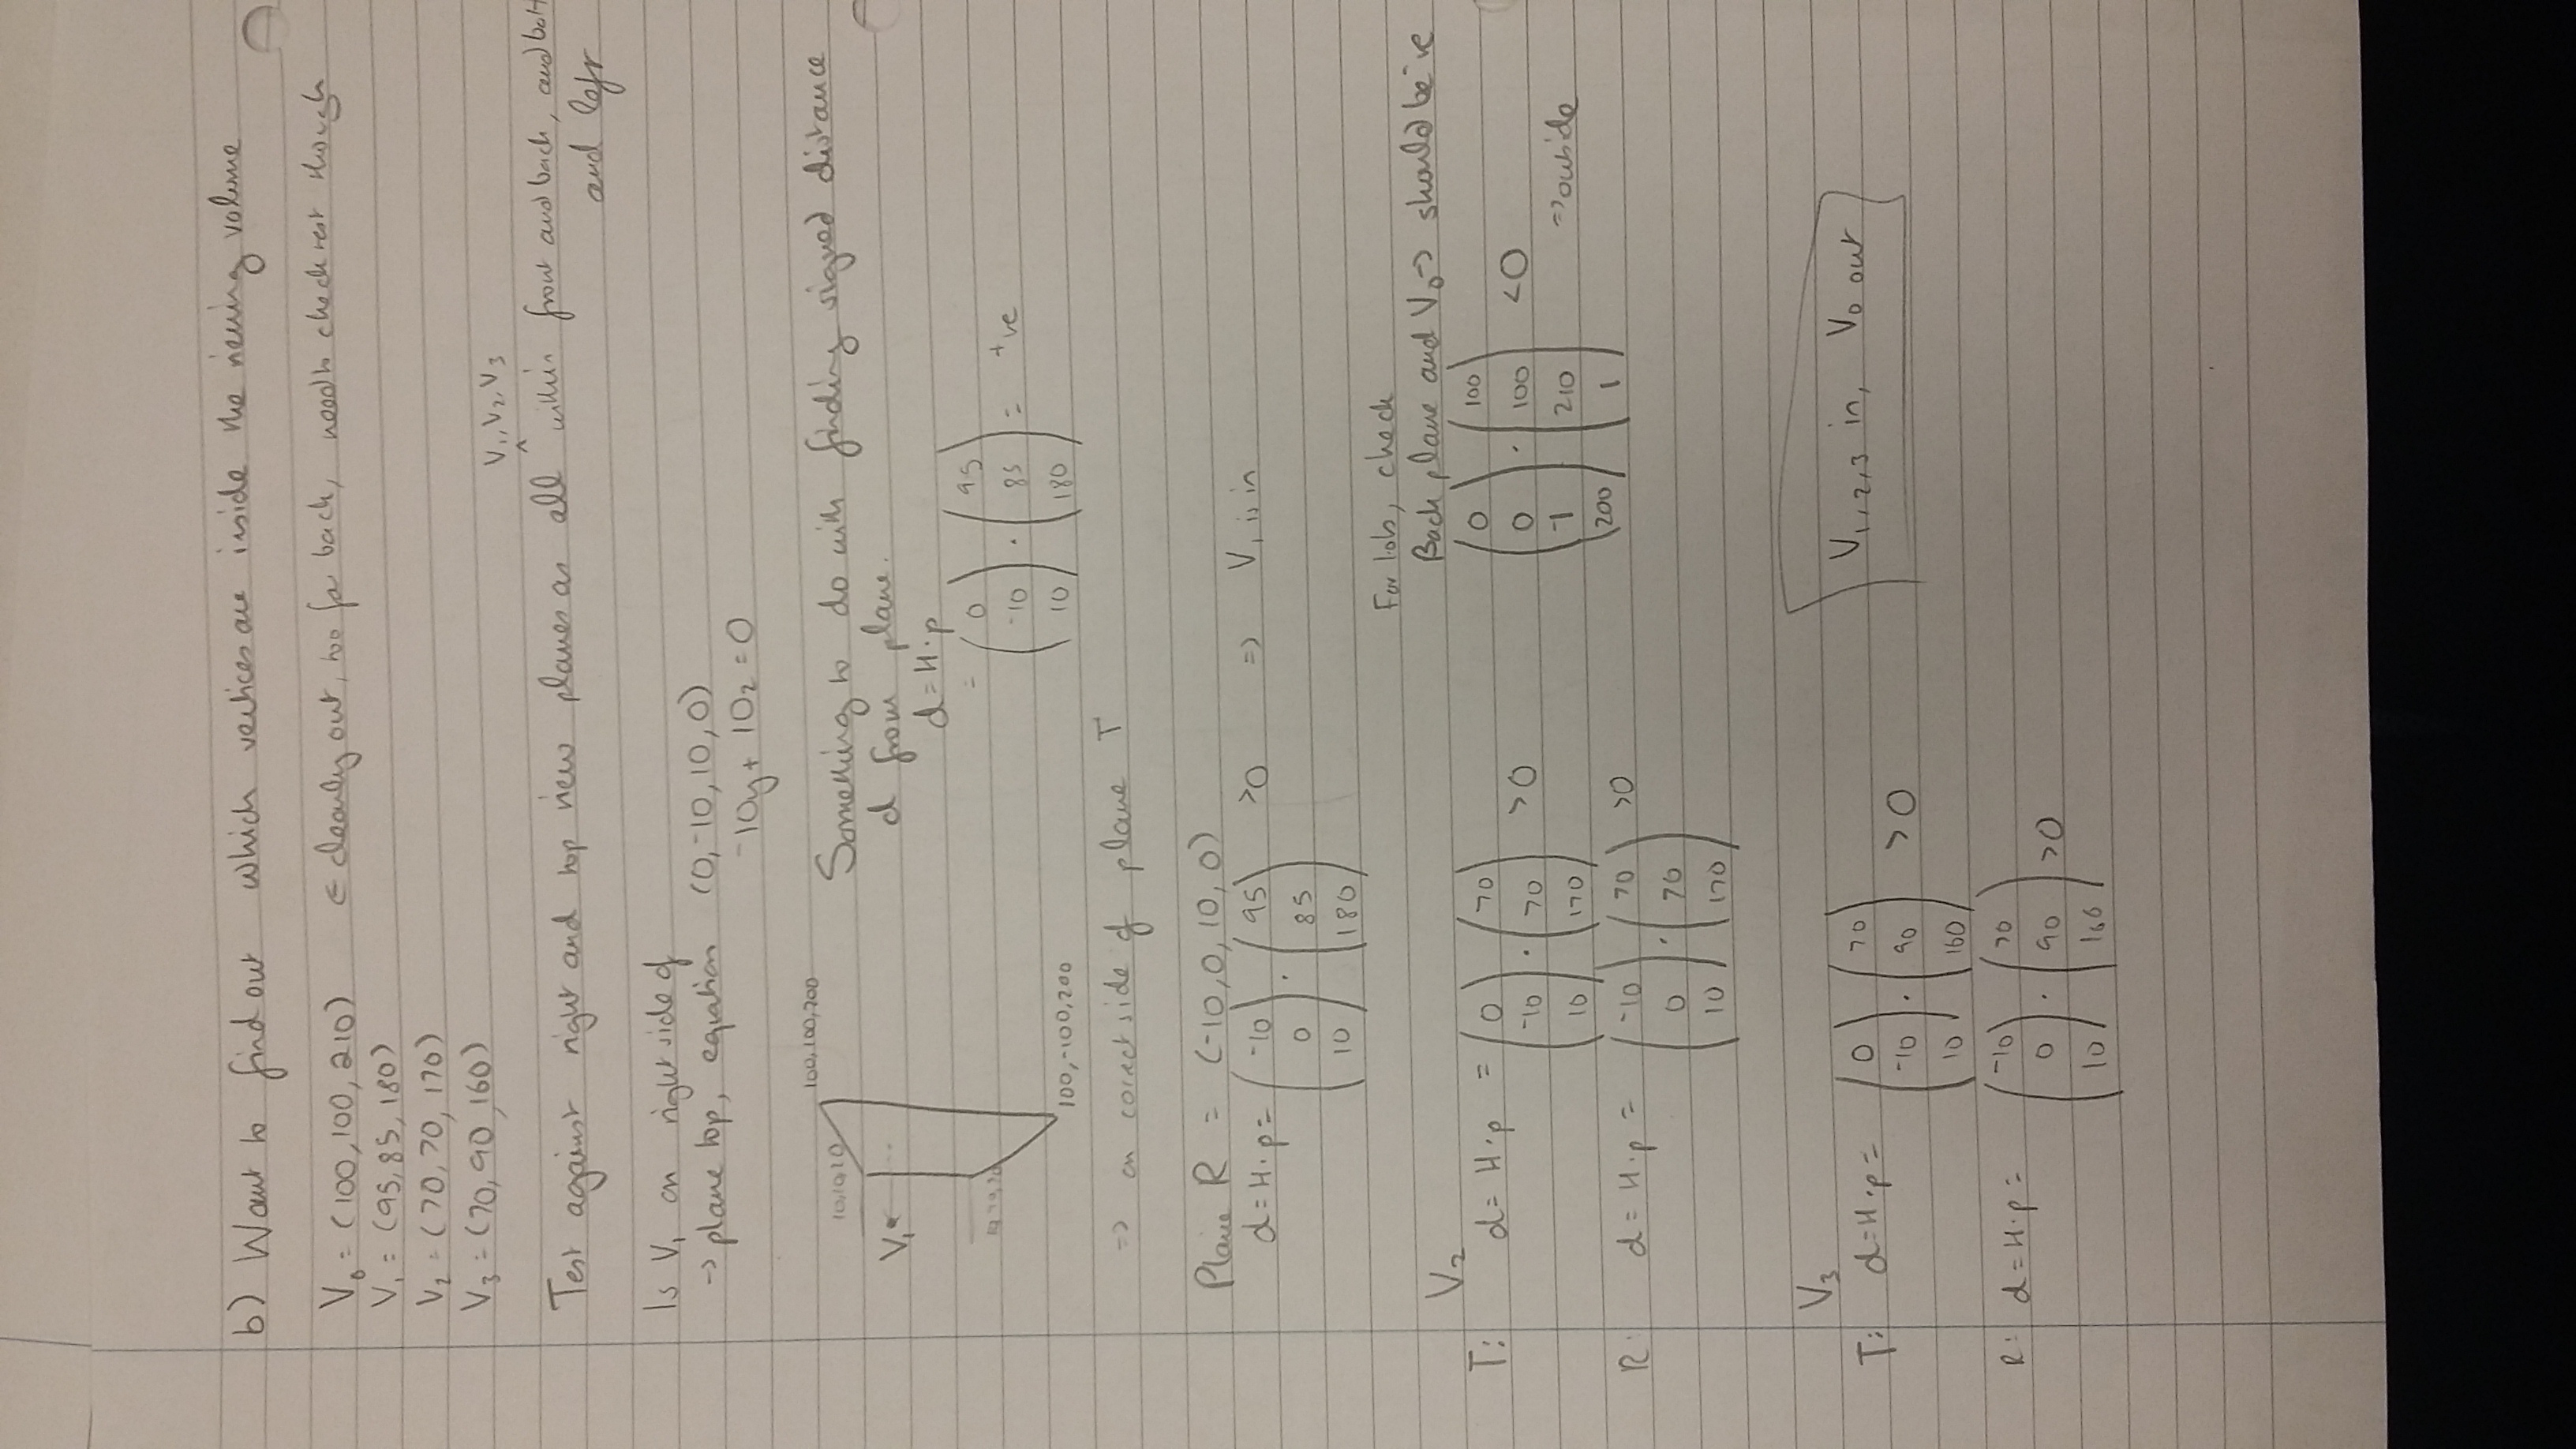 b) Want to find out which vertices are inside the viewing volume
V₀ = (100,100,210) ← clearly out, too far back, need to check rest though
V₁ = (95,85,180)
V₂ = (70,70,170)
V₃ = (70,90,160)
V₁,V₂,V₃
Test against right and top view planes as all ^ within front and back, and bott
and left
Is V₁ on right side of
-> plane top, equation (0,-10,10,0)
-10y + 10z = 0
100,100,200
10,10,20
V₁
100,-100,200
Something to do with finding signed distance
d from plane.
d = H·p
= (0 -10 10) · (95 85 180) = +ve
=> on correct side of plane T
Plane R = (-10,0,10,0)
d = H·p = (-10 0 10) · (95 85 180) >0 => V₁ is in
For lols, check
Back plane and V₀ -> should be -ve
(0 0 -1 200) · (100 100 210 1) <0
=> outside
V₂
T: d = H·p = (0 -10 10) · (70 70 170) >0
R: d = H·p = (-10 0 10) · (70 70 170) >0
V₃
T: d = H·p = (0 -10 10) · (70 90 160) >0
R: d = H·p = (-10 0 10) · (70 90 160) >0
V₁,₂,₃ in, V₀ out